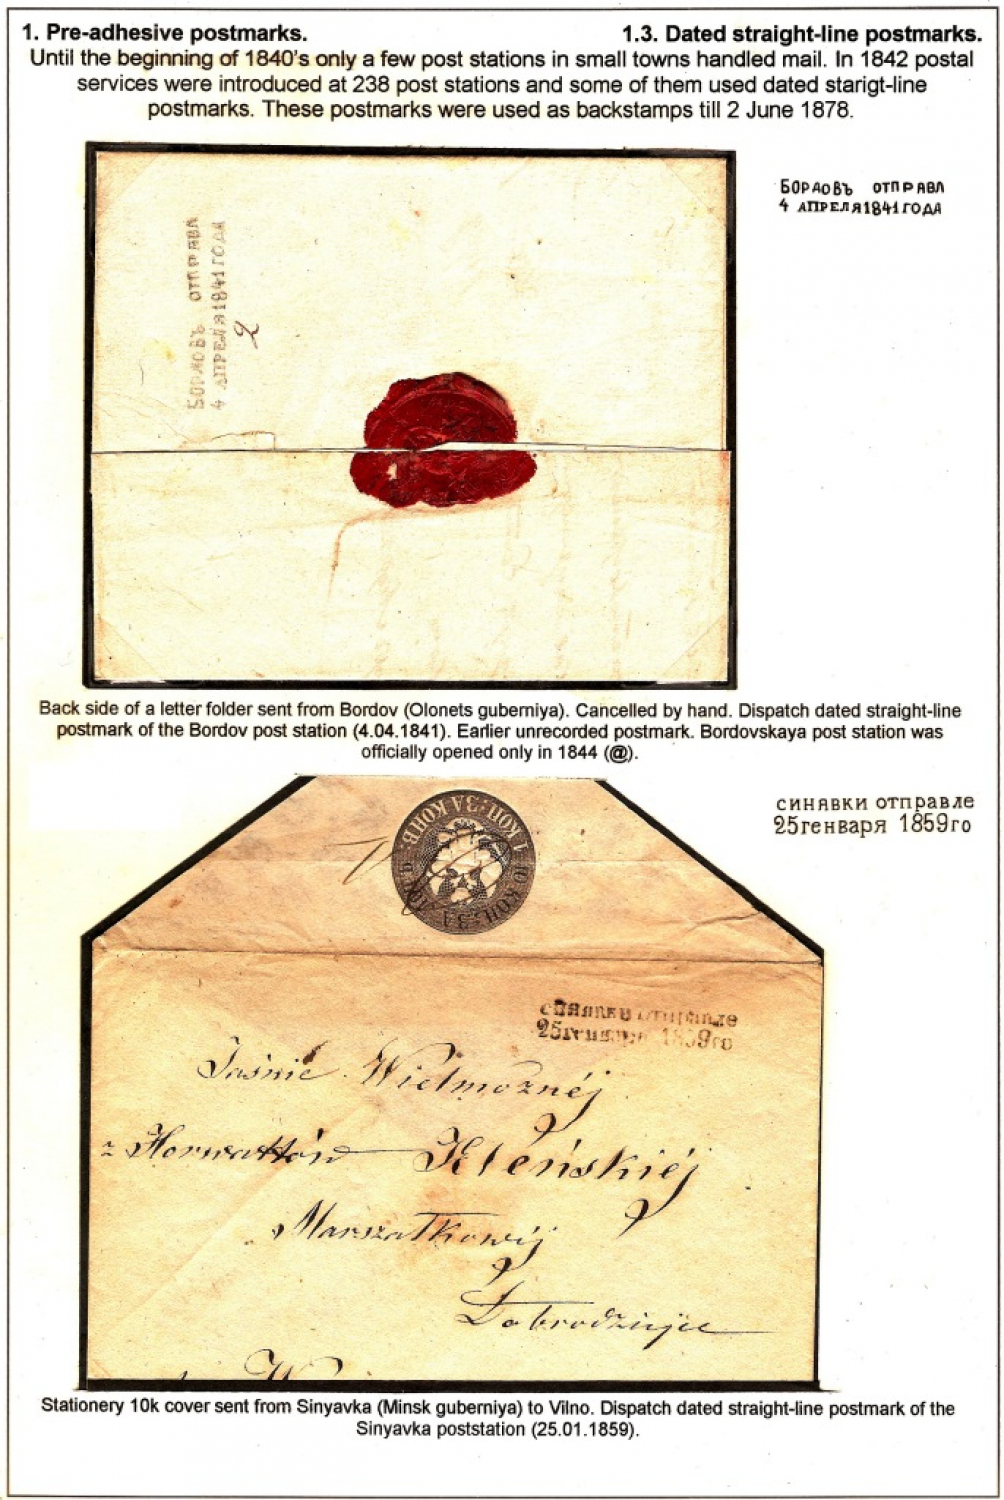 1. Pre-adhesive postmarks. 1.3. Dated straight-line postmarks.
Until the beginning of 1840's only a few post stations in small towns handled mail. In 1842 postal
services were introduced at 238 post stations and some of them used dated starigt-line
postmarks. These postmarks were used as backstamps till 2 June 1878.
БОРДОВЪ ОТПРАВЛ
4 АПРЕЛЯ 1841 ГОДА
БОРДОВЪ ОТПРАВЛ
4 АПРЕЛЯ 1841 ГОДА
2
Back side of a letter folder sent from Bordov (Olonets guberniya). Cancelled by hand. Dispatch dated straight-line
postmark of the Bordov post station (4.04.1841). Earlier unrecorded postmark. Bordovskaya post station was
officially opened only in 1844 (@).
1 КОП: ЗА КОНВ. 10 КОП: ЗА ЛОТЪ
синявки отправле
25генваря 1859го
синявки отправле
25генваря 1859го
Jaśnie Wielmożnéj
z Horwattów Jeleńskiéj
Marszałkowéj
Dobrodziejce
Stationery 10k cover sent from Sinyavka (Minsk guberniya) to Vilno. Dispatch dated straight-line postmark of the
Sinyavka poststation (25.01.1859).